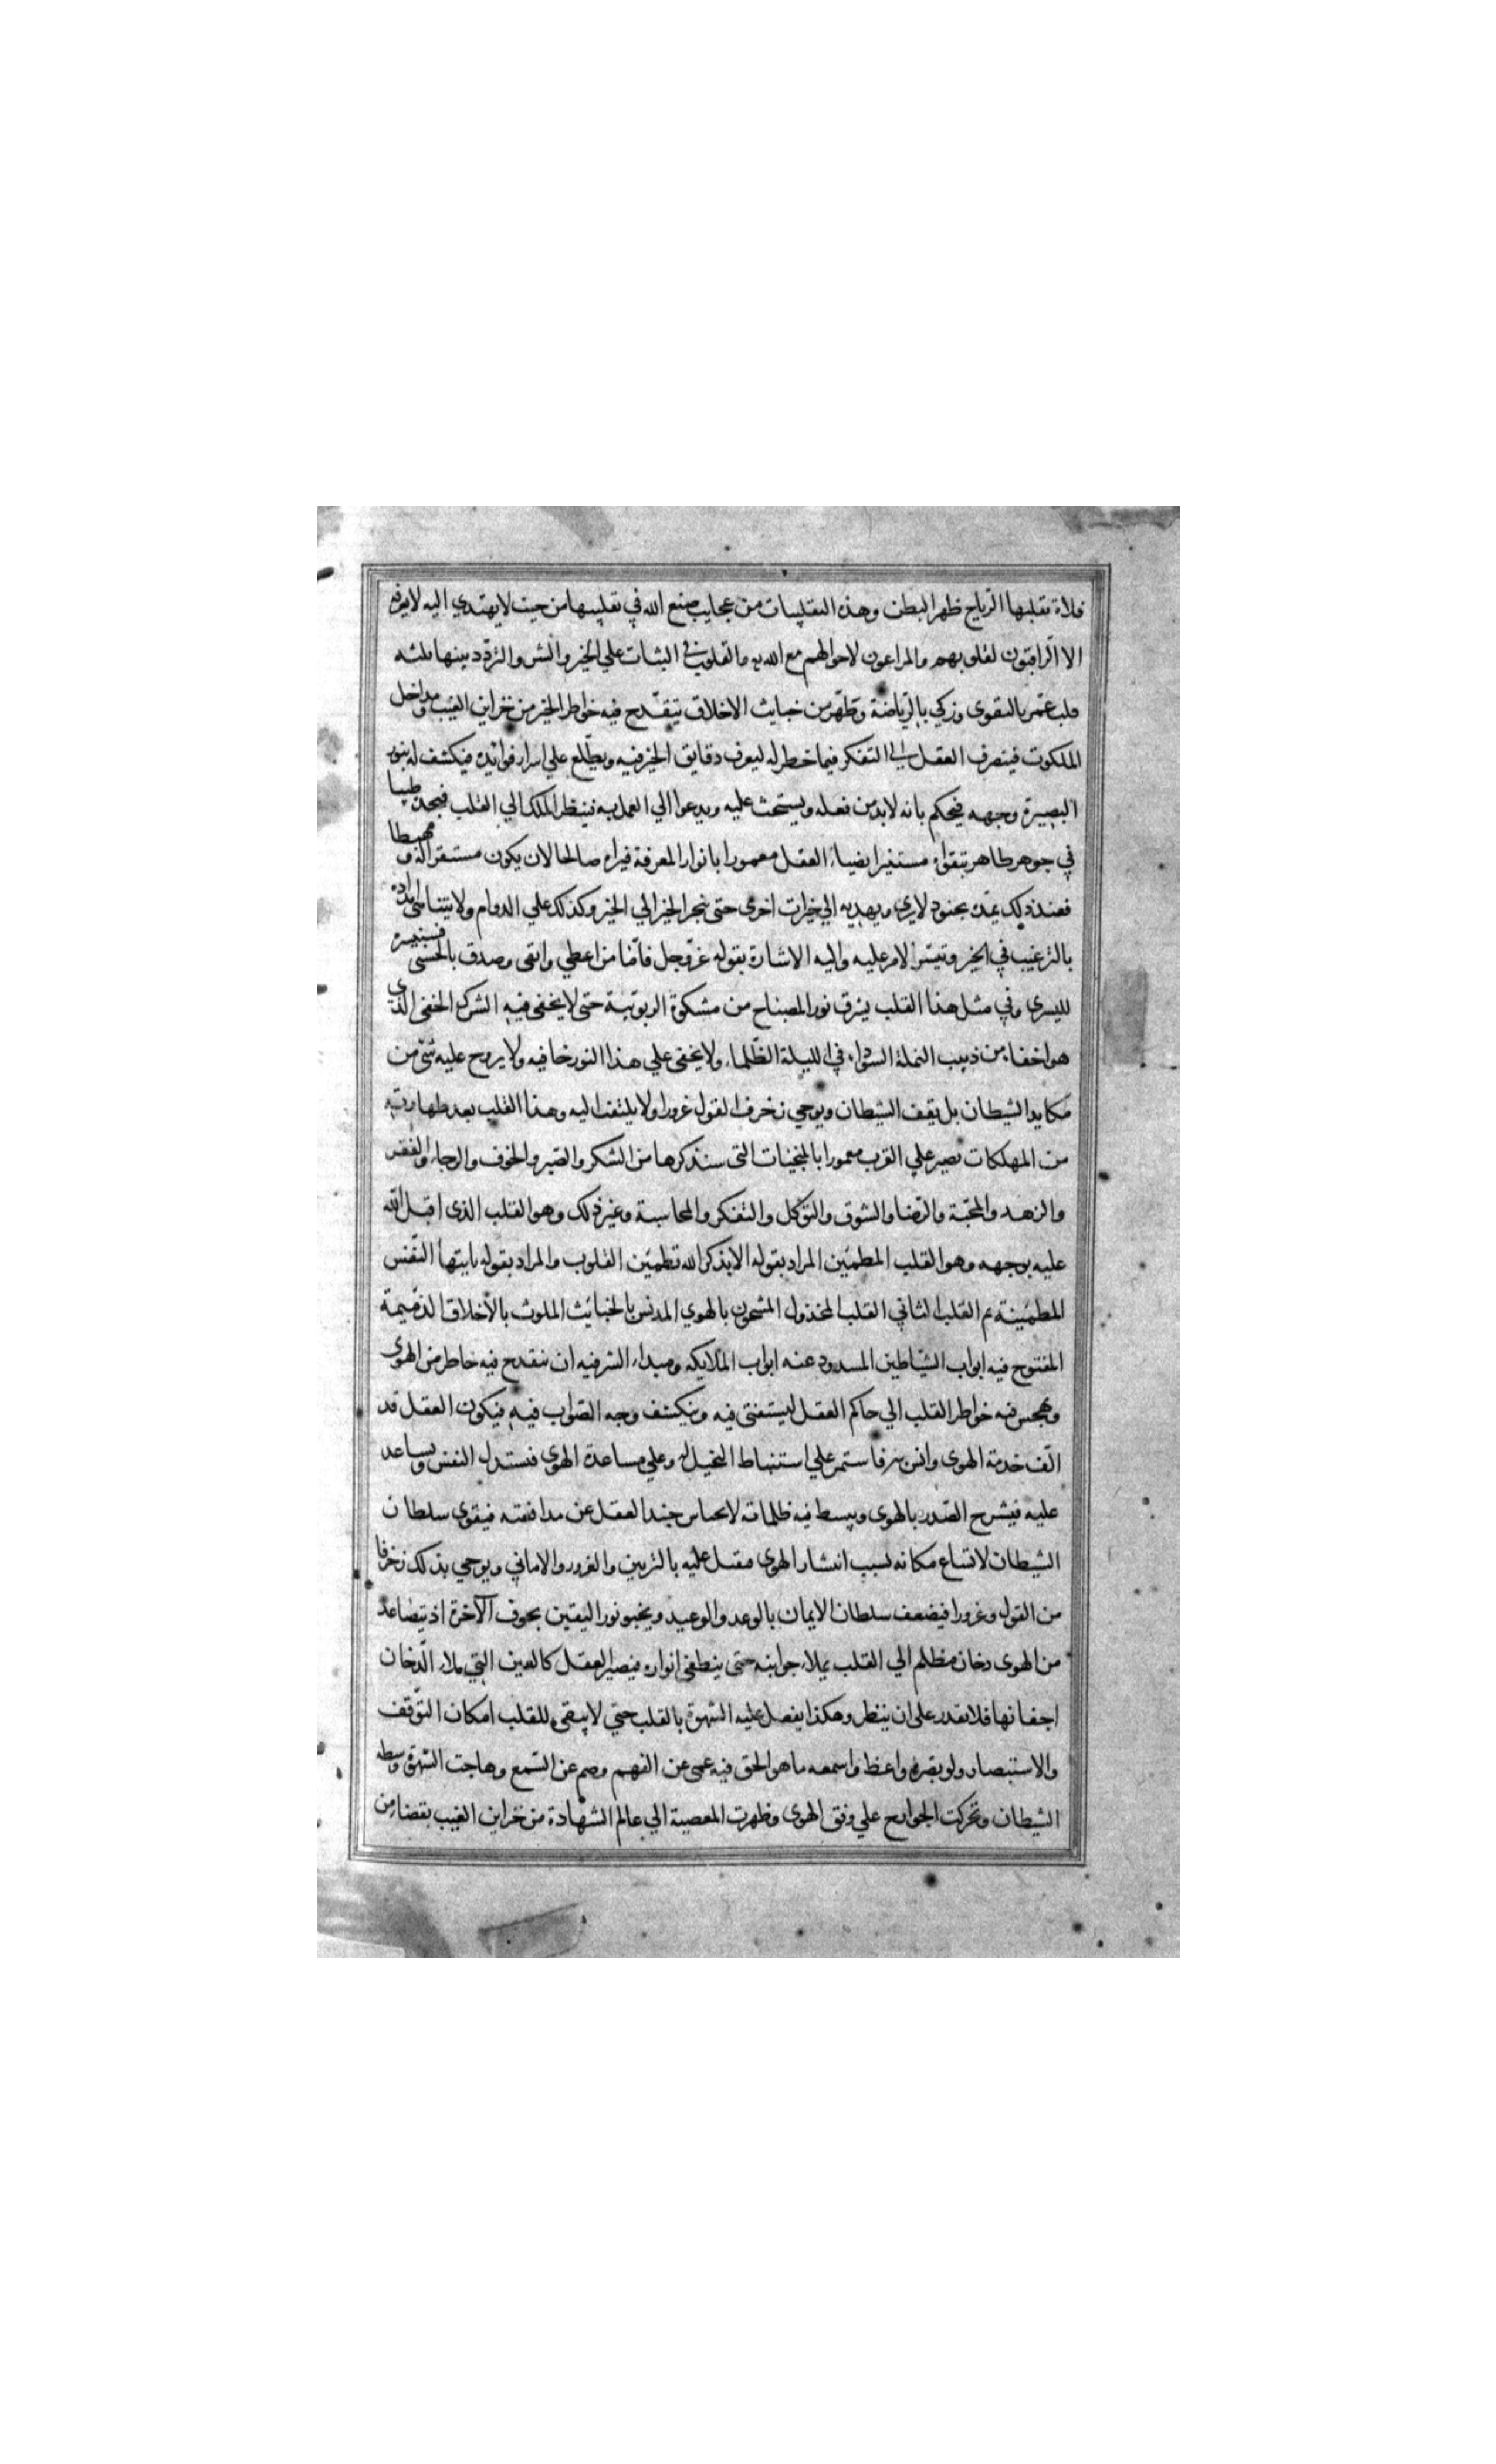 فلاة تقلبها الرياح ظهرا لبطن وهذه التقلیبات من عجایب صنع الله في تقلیبها من حیث لا یهتدي الیه لا یعرفه
الا الراقبون لقلوبهم والمراعون لاحوالهم مع الله یه والقلوب في الثبات علي الخیر والشر والتردد بینهما ثلثه
قلب عمّر بالتقوی وزکي بالریاضة وتطهر من خبایث الاخلاق تنقدح فیه خواطر الخیر من خزاین الغیب ومداخل
الملکوت فیتصرف العقل الي التفکر فیما خطر له لیعرف دقایق الخیر فیه ویطلع علي اسرار فوائده فیکشف له بنور
البصیرة وجهه فیحکم بانه لابد من فعله ویستحث علیه ویدعوا الي العمل به فینظر الملک الي القلب فیجده طیبا
في جوهر طاهر بتقواه مستنیرا بضیاء العقل معمورا بانوار المعرفة فیراه صالحا لان یکون مستقرا له ومهبطا
فعند ذلک یمده بجنود لا یري ویهدیه الي خیرات اخری حتی ینجر الخیر الي الخیر وکذلک علي الدوام ولا یتناهی امداده
بالترغیب في الخیر وتیسر الامر علیه والیه الاشارة بقوله عز وجل فاما من اعطي واتقی وصدق بالحسنی فسنیسره
للیسری وفي مثل هذا القلب یشرق نور المصباح من مشکوة الربوبیة حتی لا یخفی فیه الشرک الخفي الذي
هو اخفا من دبیب النملة السوداء في اللیلة الظلماء ولا یخفی علي هذا النور خافیه ولا یروح علیه شئ من
مکاید الشیطان بل یقف الشیطان ویوحي زخرف القول غرورا ولا یلتفت الیه وهذا القلب بعد طهارته
من المهلکات تصیر علي القرب معمورا بالمنجیات التی سنذکرها من الشکر والصبر والخوف والرجاء والفقر
والزهد والمحبة والرضا والشوق والتوکل والتفکر والمحاسبة وغیر ذلک وهو القلب الذی اقبل الله
علیه بوجهه وهو القلب المطمئن المراد بقوله الا بذکر الله تطمئن القلوب والمراد بقوله یایتها النفس
المطمئنة م القلب الثاني القلب المخذول المشحون بالهوي المدنس بالخبائث الملوث بالاخلاق الذمیمة
المفتوح فیه ابواب الشیاطین المسدود عنه ابواب الملایکه ومبداء الشر فیه ان ینقدح فیه خاطر من الهوی
ویهجس فیه خواطر القلب الي حاکم العقل لیستفتی فیه وینکشف وجه الصواب فیه فیکون العقل قد
الف خدمة الهوی وانس به فاستمر علي استنباط الحیل له وعلي مساعدة الهوی فتستدل النفس ویساعد
علیه فیشرح الصدر بالهوی ویبسط فیه ظلماته لانحباس جند العقل عن مدافعته فیقوی سلطان
الشیطان لاتساع مکانه بسبب انتشار الهوی فیقبل علیه بالتزیین والغرور والاماني ویوحي بذلک زخرفا
من القول وغرورا فیضعف سلطان الایمان بالوعد والوعید ویخبو نور الیقین بخوف الآخرة اذ یتصاعد
من الهوی دخان مظلم الي القلب یملاء جوانبه حتی ینطفي انواره فیصیر العقل کالعین التي ملاء الدخان
اجفانها فلا تقدر علی ان ینظر وهکذا یفعل علیه الشهوة بالقلب حتي لا یبقی للقلب امکان التوقف
والاستبصار ولو بصره واعظ واسمعه ما هو الحق فیه عمی عن الفهم وصم عن السمع وهاجت الشهوة وسطه
الشیطان وتحرکت الجوارح علي وفق الهوی وظهرت المعصیة الي عالم الشهادة من خزاین الغیب بقضا من